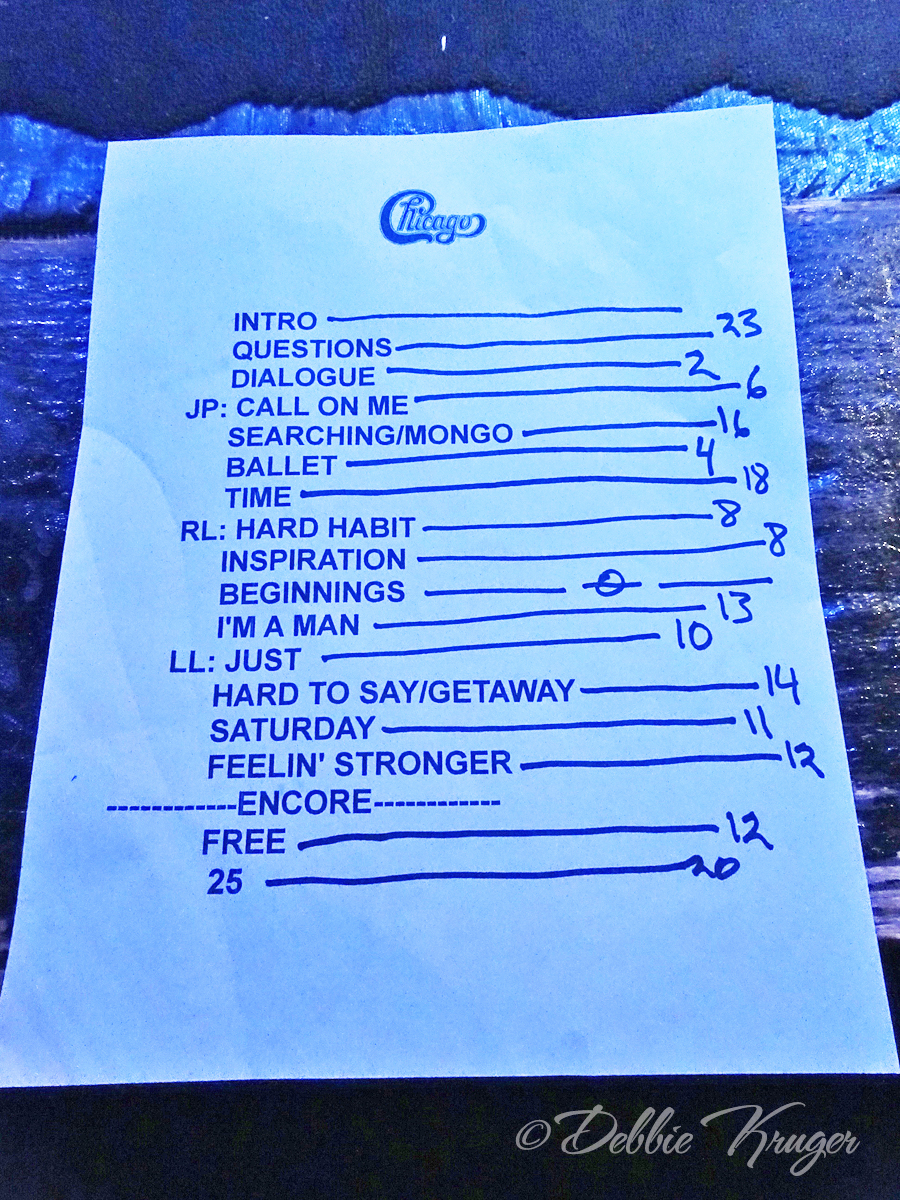 Chicago
INTRO
QUESTIONS 23
DIALOGUE 2
JP: CALL ON ME 6
SEARCHING/MONGO 16
BALLET 4
TIME 18
RL: HARD HABIT 8
INSPIRATION 8
BEGINNINGS 0
I'M A MAN 13
LL: JUST 10
HARD TO SAY/GETAWAY 14
SATURDAY 11
FEELIN' STRONGER 12
------------ENCORE------------
FREE 12
25 20
© Debbie Kruger